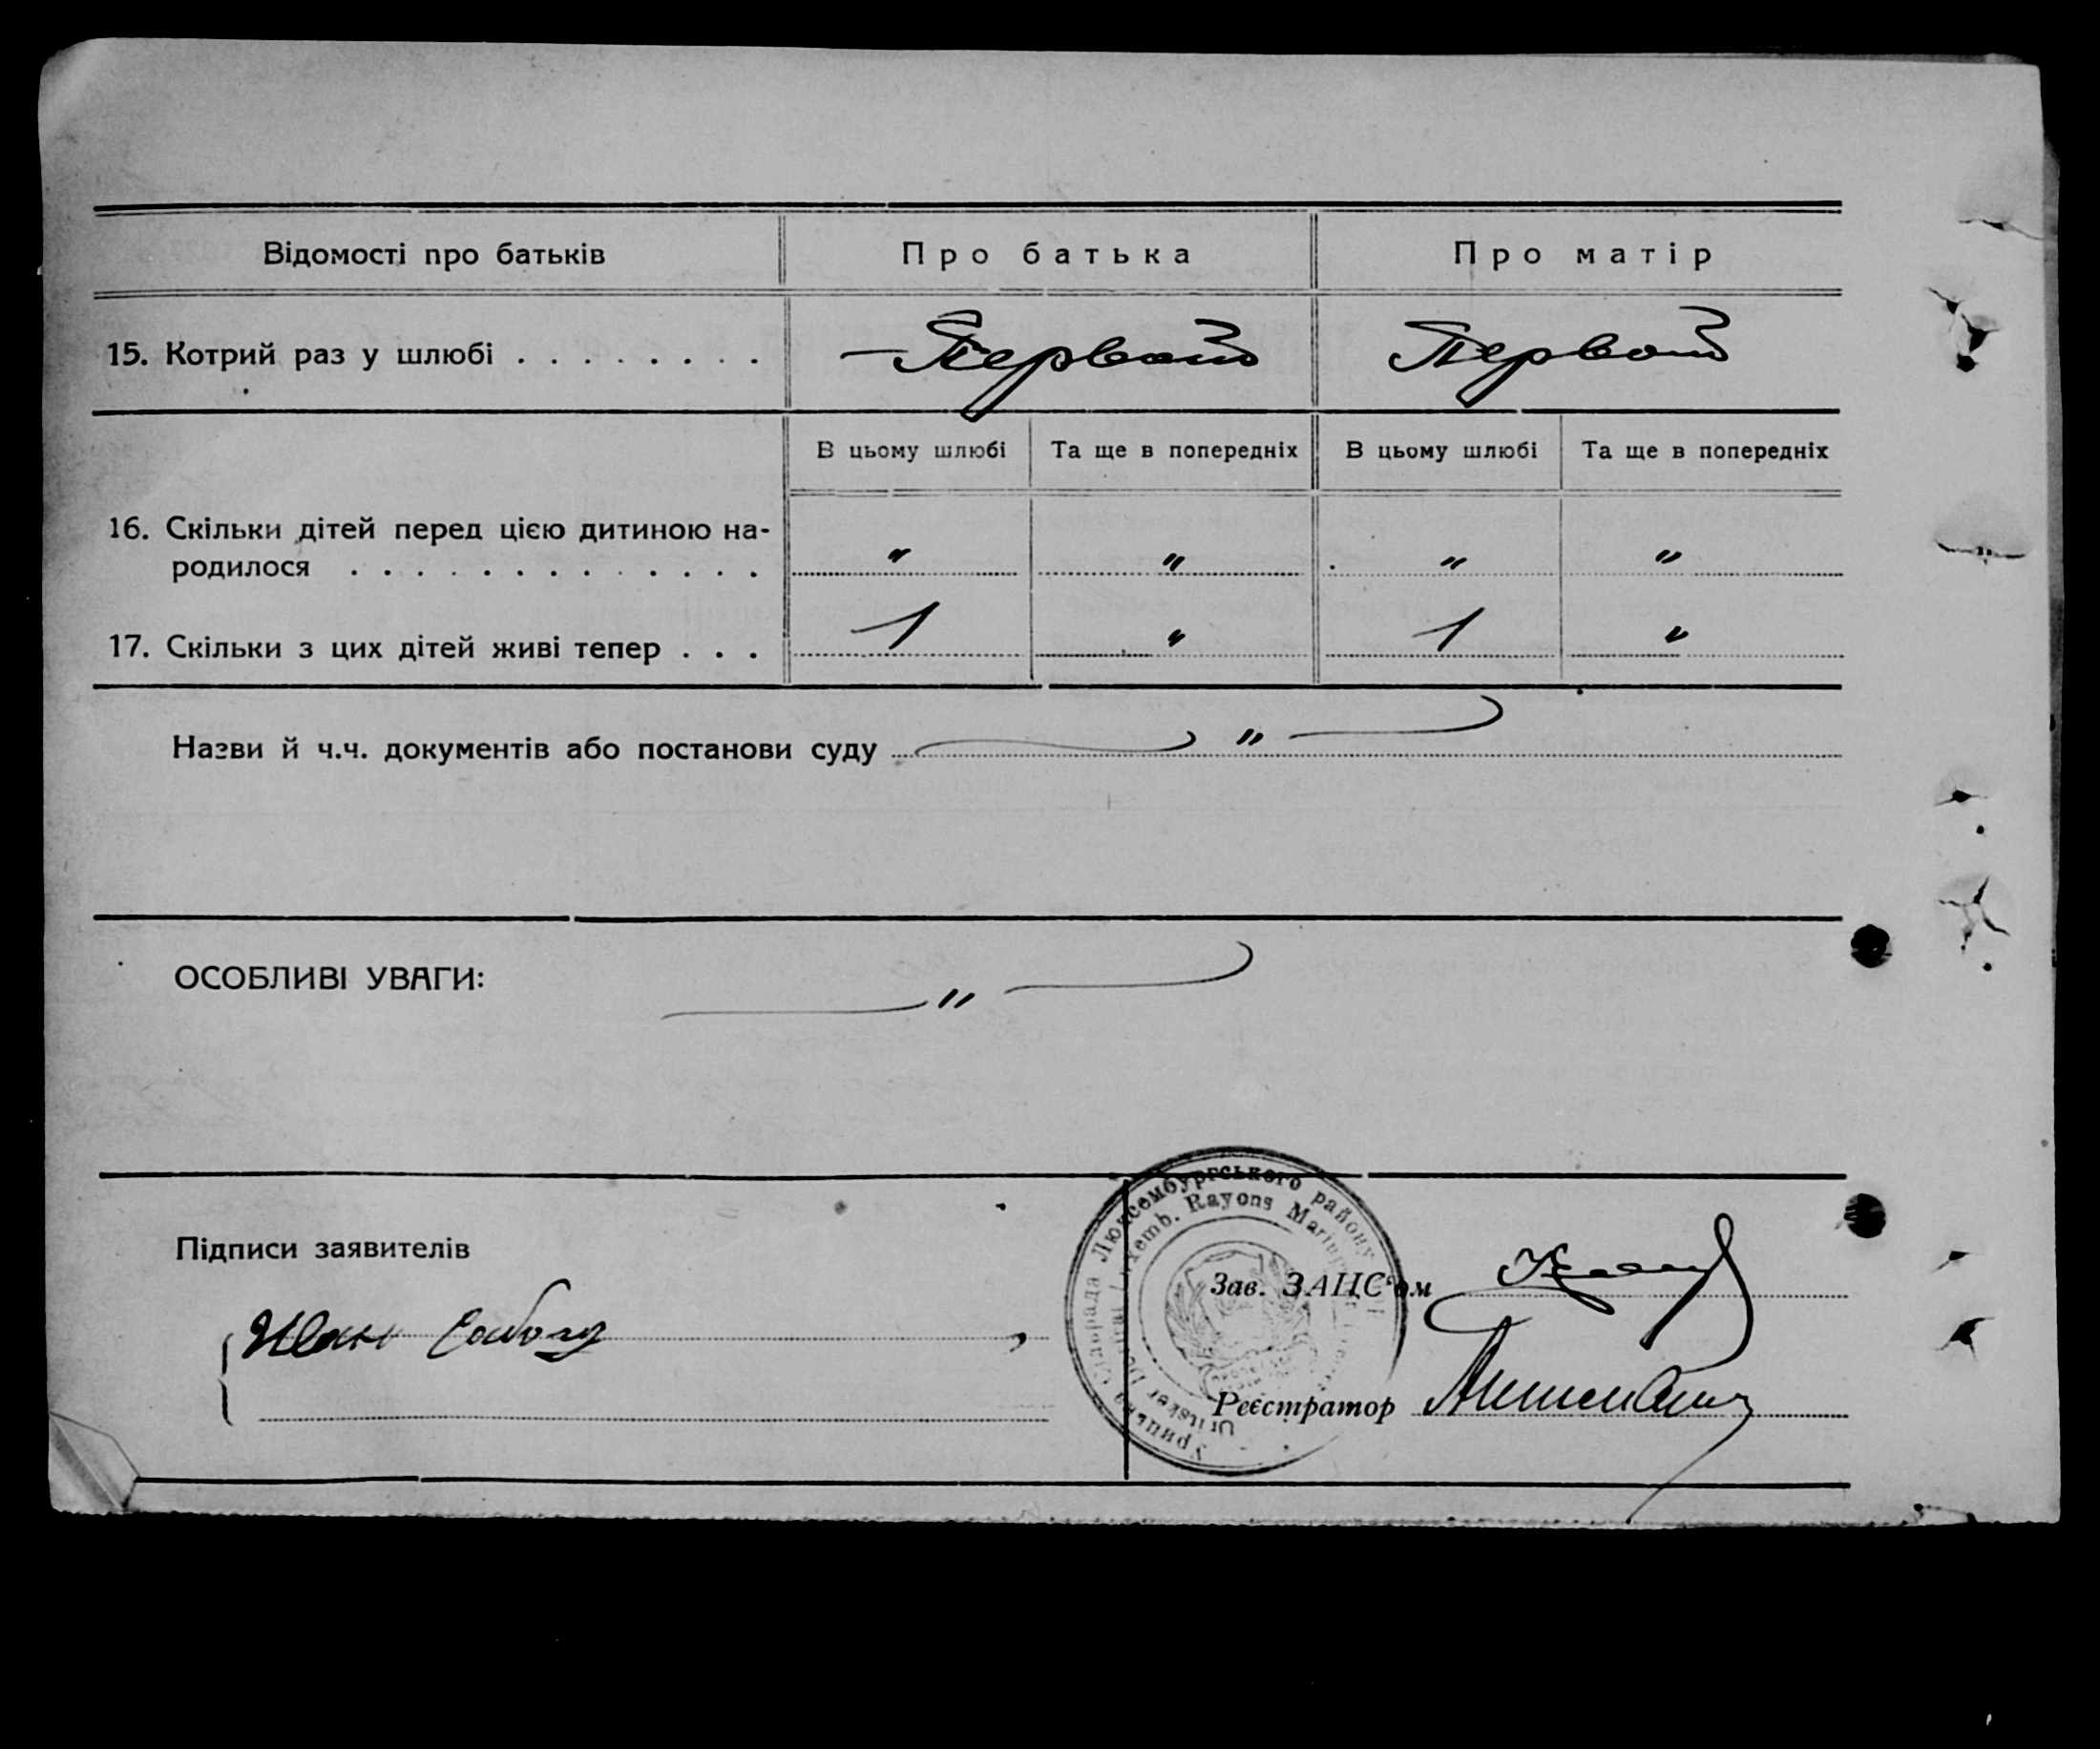 Відомості про батьків Про батька Про матір
15. Котрий раз у шлюбі . . . . . . . . Первой Первой
В цьому шлюбі Та ще в попередніх В цьому шлюбі Та ще в попередніх
16. Скільки дітей перед цією дитиною на-
родилося . . . . . . . . . . . . . " " " "
17. Скільки з цих дітей живі тепер . . . 1 " 1 "
Назви й ч.ч. документів або постанови суду "
ОСОБЛИВІ УВАГИ: "
Люксембургського району
Rayons
Підписи заявителів
Зав. ЗАПС'ом
Иван
Реєстратор